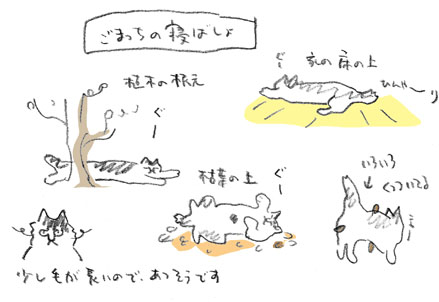 ごまっちの寝ばしょ
家の床の上
ぐー
ひんや〜り
植木の根元
ぐー
枯葉の上
ぐー
いろいろ
くっついてる
少し毛が長いので、あつそうです